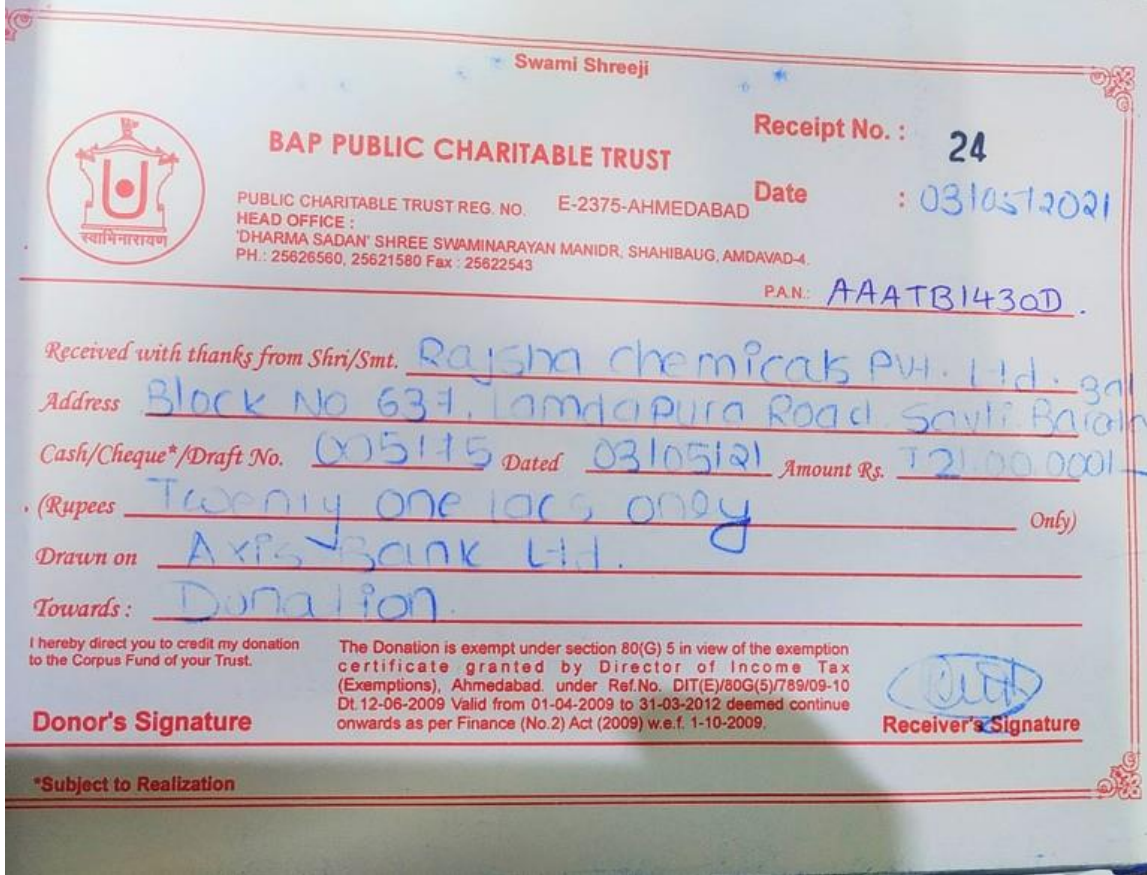 Swami Shreeji
BAP PUBLIC CHARITABLE TRUST
Receipt No. : 24
Date : 03/05/2021
PUBLIC CHARITABLE TRUST REG. NO. E-2375-AHMEDABAD
HEAD OFFICE :
'DHARMA SADAN' SHREE SWAMINARAYAN MANIDR, SHAHIBAUG, AMDAVAD-4.
PH.: 25626560, 25621580 Fax : 25622543
स्वामिनारायण
P.A.N.: AAATB1430D.
Received with thanks from Shri/Smt. Rajsha Chemicals Pvt. Ltd.
Address Block No 637, Lamdapura Road. Savli
Cash/Cheque*/Draft No. 005175 Dated 03/05/21 Amount Rs. 21,00,000/-
(Rupees Twenty one lacs only Only)
Drawn on Axis Bank Ltd.
Towards : Donation.
I hereby direct you to credit my donation
to the Corpus Fund of your Trust.
The Donation is exempt under section 80(G) 5 in view of the exemption
certificate granted by Director of Income Tax
(Exemptions), Ahmedabad. under Ref.No. DIT(E)/80G(5)/789/09-10
Dt.12-06-2009 Valid from 01-04-2009 to 31-03-2012 deemed continue
onwards as per Finance (No.2) Act (2009) w.e.f. 1-10-2009.
Donor's Signature
Receiver's Signature
*Subject to Realization